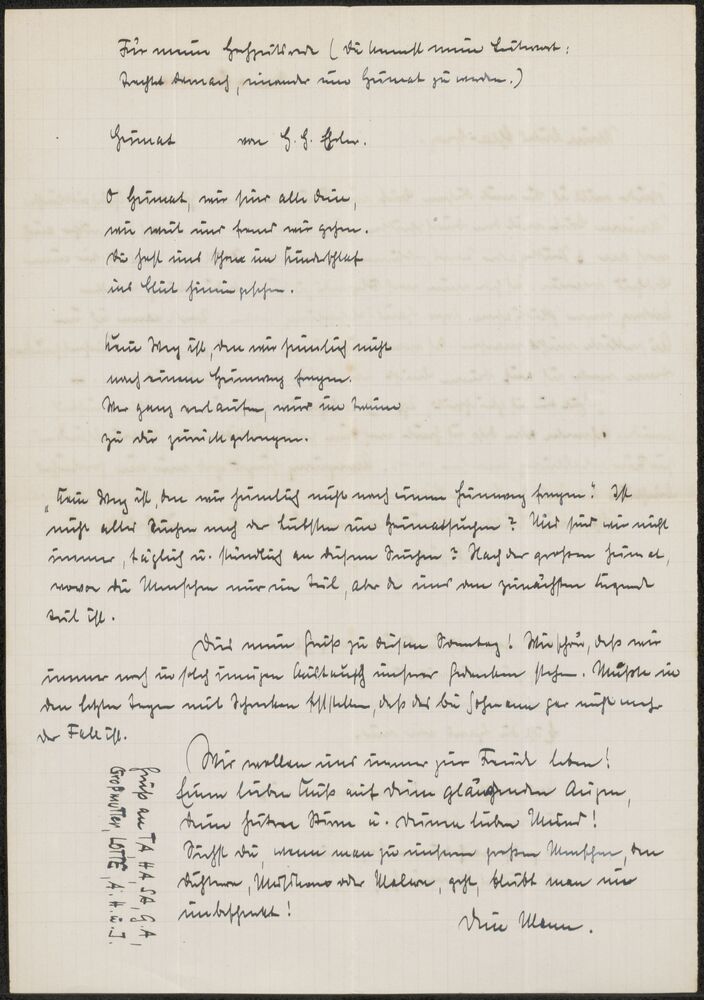 Für meine Hochzeitsrede (Du kennst mein Leitwort:
Trachtet darnach, einander eine Heimat zu werden.)
Heimat von H. H. Ehrler.
O Heimat, wir sind alle dein,
wie weit und fremd wir gehen.
Du hast uns schon im Kinderschlaf
ins Blut hineingesehen.
Kein Weg ist, den wir heimlich nicht
nach einem Heimweg fragen.
Wer ganz verlaufen, wird im Traume
zu dir zurückgetragen.
„Kein Weg ist, den wir heimlich nicht nach einem Heimweg fragen! Ist
nicht alles Suchen nach der Liebsten ein Heimatsuchen? Und sind wir nicht
immer, täglich u. stündlich an diesem Suchen? Nach der großen Heimat,
wovon die Menschen nur ein Teil, aber der uns am zunächsten liegende
Teil ist.
Dies mein Gruß zu diesem Sonntag! Wie schön, daß wir
immer noch in solch innigem Austausch unserer Gedanken stehen. Mußte in
den letzten Tagen mit Schrecken feststellen, daß das bei gar nicht mehr
der Fall ist.
Wir wollen uns immer zur Freude leben!
Einen lieben Kuß auf deine glänzenden Augen,
deine Stirne u. deinen lieben Mund!
Siehst du, wenn man zu unseren großen Menschen, den
Dichtern, Musikern oder Malern, geht, bleibt man nie
unbeschenkt!
Dein Mann.
Gruß an TA HA, SA, G.A,
Großmutter, LOTTE, A. H. u. J.